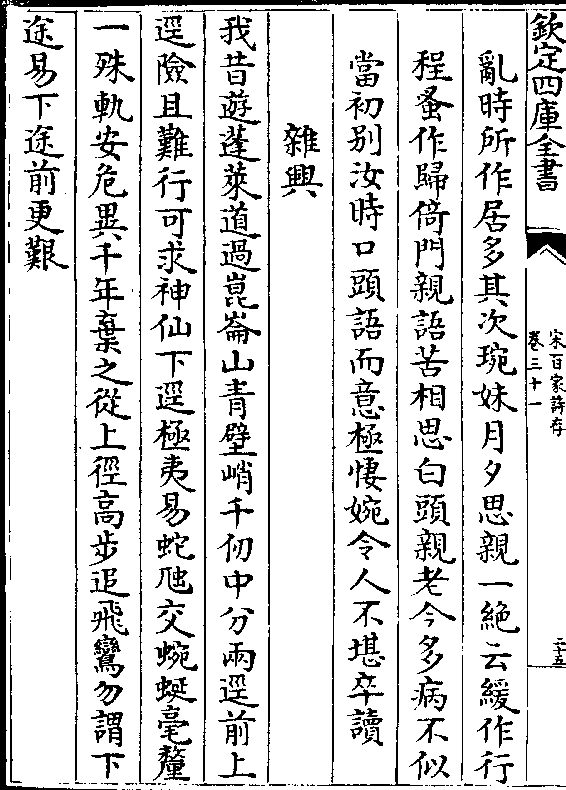 欽定四庫全書
宋百家詩存
卷三十一
二十五
亂時所作居多其次琬妹月夕思親一絶云緩作行
程蚤作歸倚門親語苦相思白頭親老今多病不似
當初别汝時口頭語而意極悽婉令人不堪卒讀
雜興
我昔遊蓬萊道過崑崙山青壁峭千仞中分兩逕前上
逕險且難行可求神仙下逕極夷易蛇虺交蜿蜒毫釐
一殊軌安危異千年棄之從上徑高步追飛鸞勿謂下
途易下途前更艱